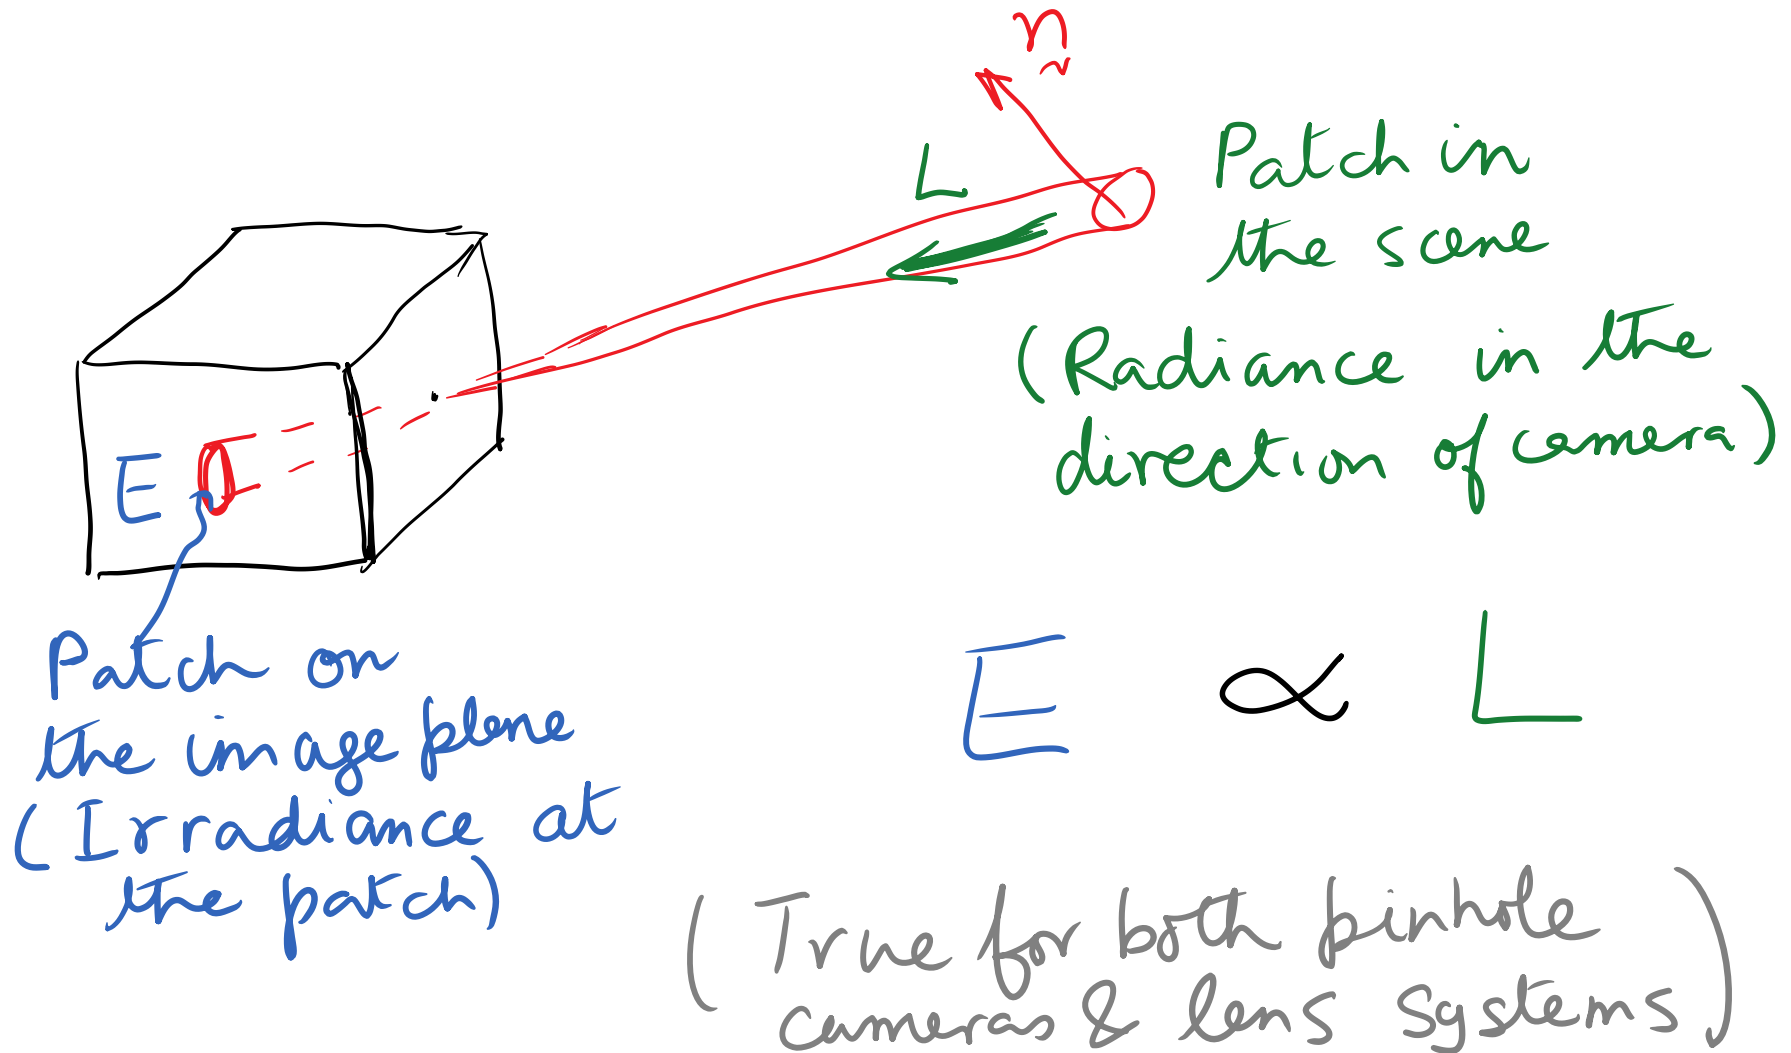 n
L
Patch in
the scene
(Radiance in the
direction of camera)
E
Patch on
the image plane
(Irradiance at
the patch)
E ∝ L
(True for both pinhole
cameras & lens systems)